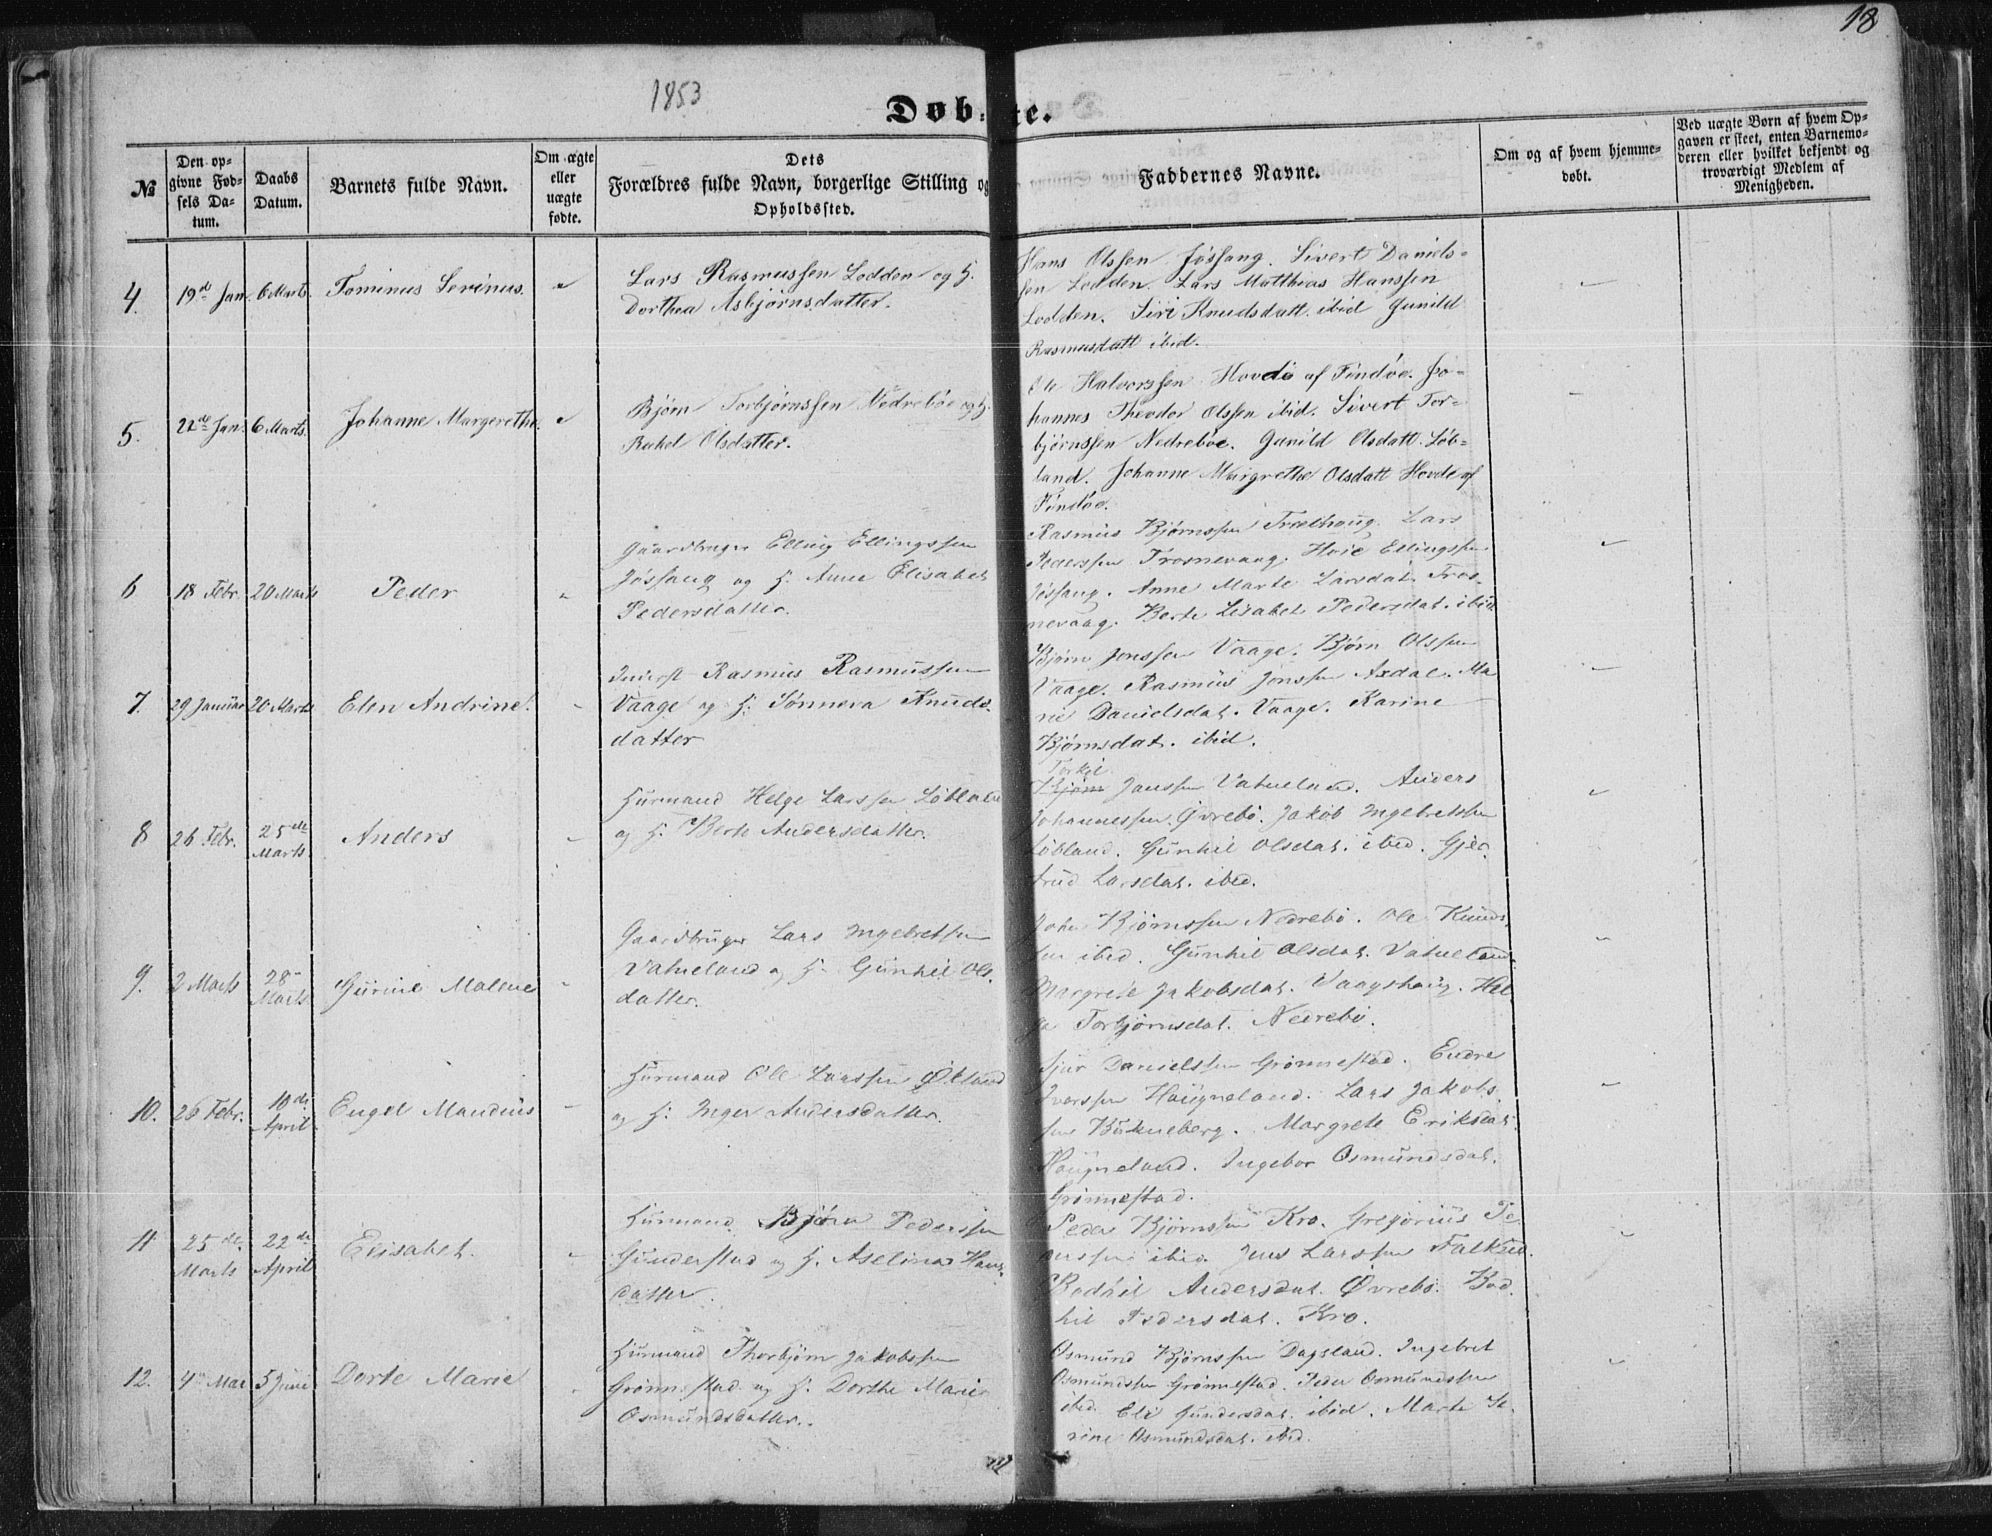 18
1853
Døbte.
№
Den opgivne Fødsels Datum.
Daabs Datum.
Barnets fulde Navn.
Om ægte eller uægte fødte.
Dets Forældres fulde Navn, borgerlige Stilling og Opholdssted.
Faddernes Navne.
Om og af hvem hjemmedøbt.
Ved uægte Børn af hvem Opgaven er skeet, enten Barnemoderen eller hvilket bekjendt og troværdigt Medlem af Menigheden.
4. 19de Jan. 6 Marts. Tominus Serinus.
Lars Rasmussen Lodden og H.
Dorthea Asbjørnsdatter.
Hans Olssen Jøssang. Sivert Daniels-
sen Lodden. Lars Matthias Hanssen
Lodden. Siri Knudsdatt. ibid Gunild
Rasmusdatt ibid.
5. 22de Jan. 6 Marts. Johanne Margerethe
Bjørn Torbjørnssen Nedrebøe og H.
Rakel Olsdatter.
Ole Halvorssen Hovde af Findøe. Jo-
hannes Theodor Olssen ibid. Sivert Tor-
bjørnssen Nedrebøe. Gunild Olsdatt. Løb-
land. Johanne Margrethe Olsdatt Hovde af
Findøe.
6 18 Febr. 20 Marts Peder
Gaardbruger Elling Ellingssen
Jøssang og H. Anne Elisabet
Pedersdatter.
Rasmus Bjørnssen Trælhoug. Lars
Pederssen Trosnevaag. Ellingssen
Jøssang. Anne Marte Larsdat. Tros-
nevaag. Berte Lisabet Pedersdat. ibid
7. 29 Januar 20 Marts Elen Andrine.
Inderst Rasmus Rasmussen
Vaage og H. Sønneva Knuds-
datter
Bjørn Jonssen Vaage. Bjørn Olssen
Vaage. Rasmus Jonssen Axdal. Ma-
rie Danielsdat. Vaage. Karine
Bjørnsdat. ibid.
8 26 Febr. 25de Marts Anders
Huusmand Helge Larssen Løbland
og H. Berte Andersdatter.
Torkil
Bjørn Janssen Vatneland. Anders
Johannessen Øvrebø. Jakob Ingebretssen
Løbland. Gunhil Olsdat. ibid. Gjer-
trud Larsdat. ibid.
9. 2 Marts 28 Marts Gurine Malene
Gaardbruger Lars Ingebretsen
Vatneland og H. Gunhil Ols-
datter.
John Bjørnssen Nedrebø. Ole Knuds-
sen ibid. Gunhil Olsdat. Vatneland.
Margrete Jakobsdat. Vaagshaug. Hel-
ga Torbjørnsdat. Nedrebø.
10. 26 Febr. 10de April Engel Maudius
Huusmand Ole Larssen Økland
og H. Inger Andersdatter.
Sjur Danielssen Grønnestad. Endre
Iverssen Haugneland. Lars Jakobs-
sen Bokneberg. Margrete Eriksdat.
Haugneland. Ingebor Osmundsdat.
Grønnestad.
11 25de Marts 22de April Elisabet.
Huusmand Bjørn Pederssen
Gunderstad og H. Aselina Hans-
datter.
Peder Bjørnssen Kro. Gregorius Pe-
derssen ibid. Jens Larssen
Bodhil Andersdat. Øvrebø. Bod-
hil Pedersdat. Kro.
12. 4de Mai 5 Juni Dorte Marie
Huusmand Thorbjørn Jakobssen
Grønnestad og H. Dorthe Marie
Osmundsdatter.
Osmund Bjørnssen Dagsland. Ingebret
Osmundssen Grønnestad. Peder Osmundssen
ibid. Eli Gundersdat. ibid. Marte Se-
rine Osmundsdat. ibid.